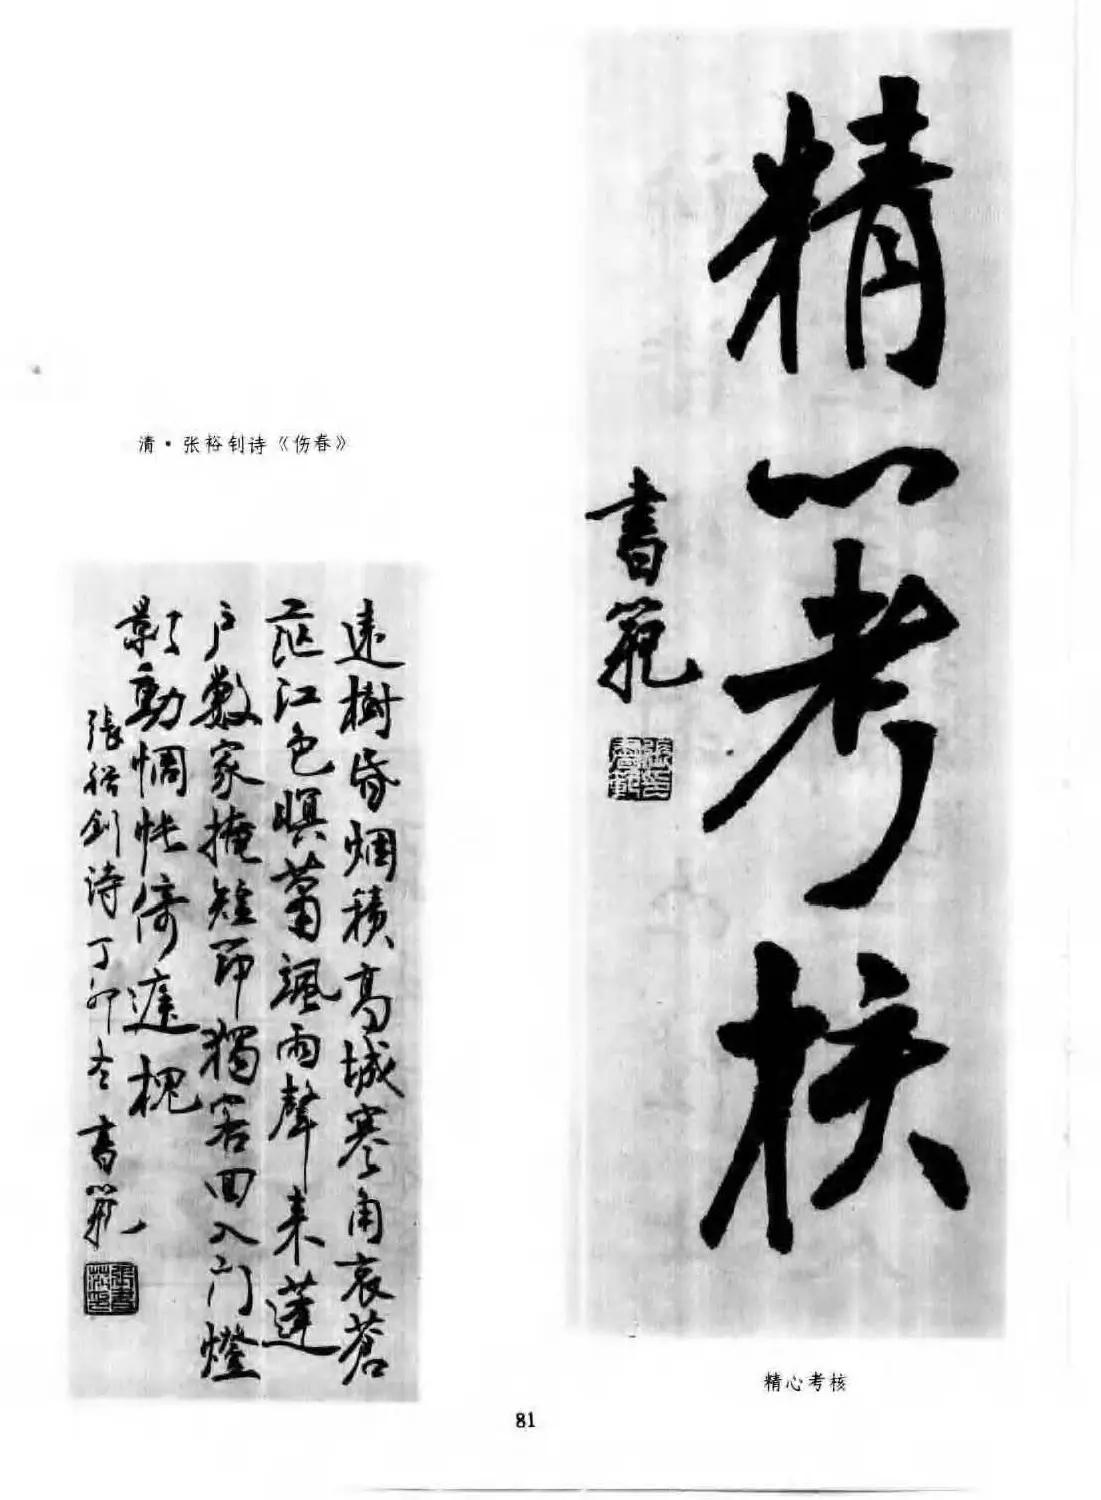 精心考核
書範
張印書範
清·张裕钊诗《伤春》
遠樹昏烟積高城寒角哀蒼
茫江色暝蕭颯雨聲来蓬
户數家掩短筇獨客回入门燈
影動惆悵倚庭槐
張裕釗诗丁卯冬書範
張書範印
精心考核
81